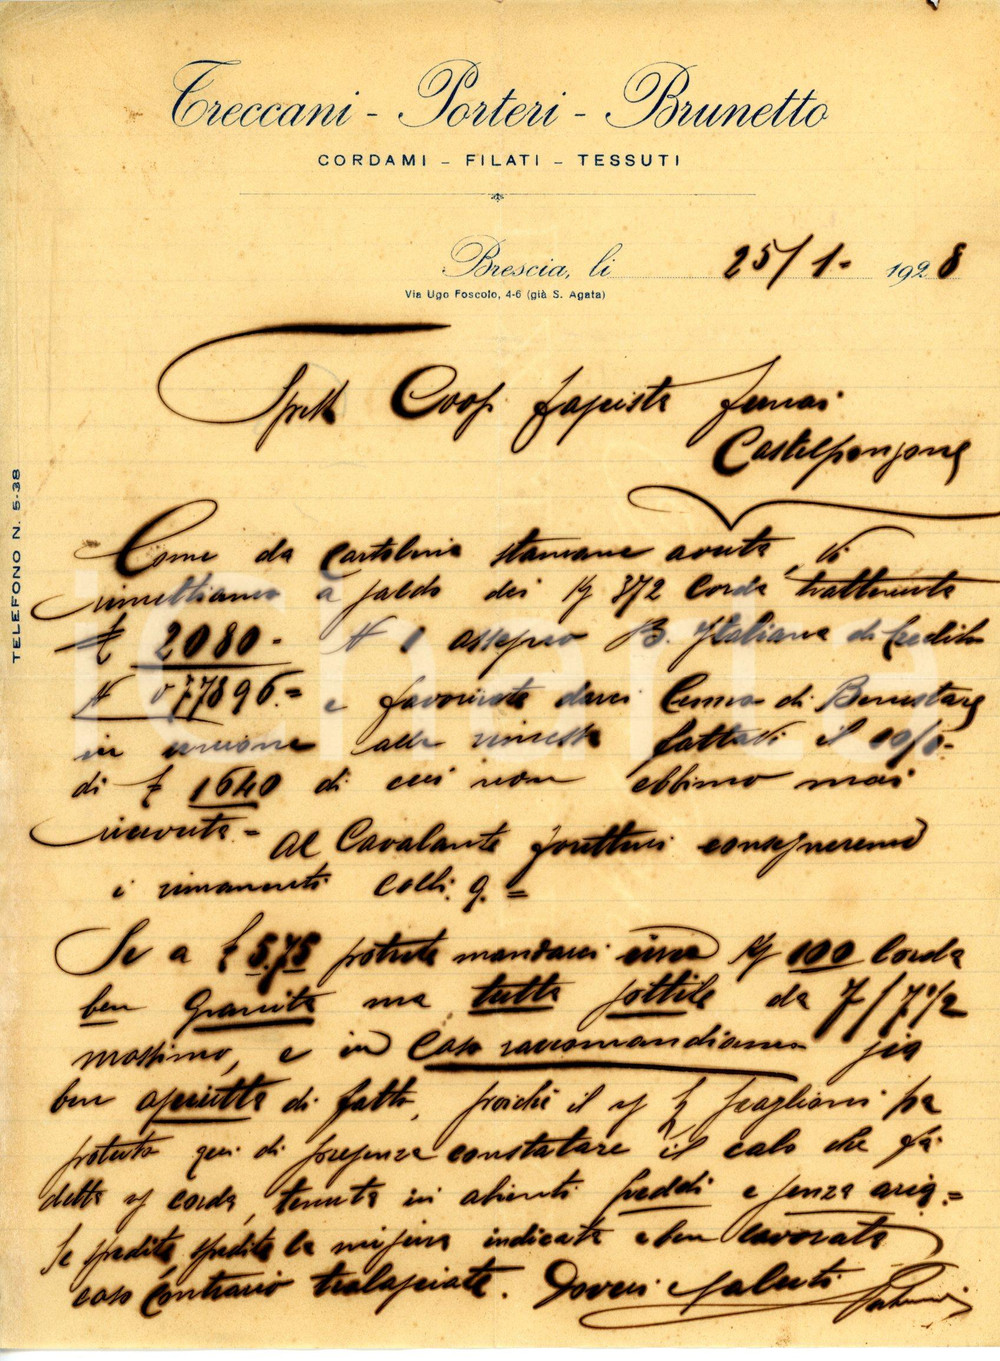 Treccani - Porteri - Brunetto
CORDAMI - FILATI - TESSUTI
Brescia, li 25/1- 1928
Via Ugo Foscolo, 4-6 (già S. Agata)
TELEFONO N. 5-38
Spett Coop. fascista funai
Castelponzone
Come da cartolina stamane avuta, vi
rimettiamo a saldo dei Kg 372 corda, trattenuta
£ 2080- N 1 assegno B. Italiana di Credito
N 077896.= e favorirete darci Cenno di Benestare
in unione alla rimessa fattavi il 10/1.-
di £ 1640 di cui non ebbimo mai
ricevuta.= Al Cavalante consegneremo
i rimanenti colli. 9.=
Se a £ 5.75 potrete mandarci circa Kg 100 Corda
ben granita ma tutta sottile da 7/7½
massimo, e in caso raccomandiamo sia
ben asciutta di fatto, poichè il
potuto qui di presenza constatare il calo che fa
detta corda, tenuta in ambienti freddi e senza aria.=
Se spedite, spedite la misura indicata e ben lavorata
caso contrario tralasciate. Doveri Saluti